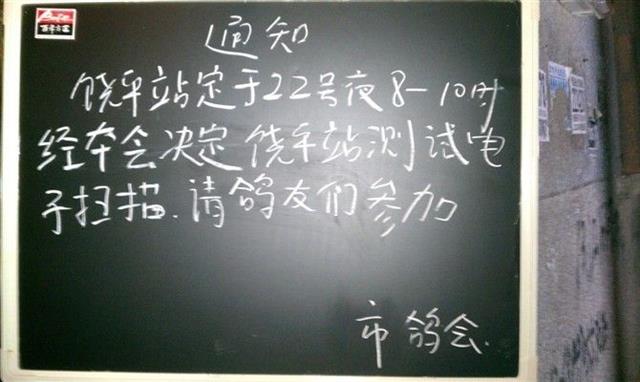 通知
饶平站定于22号夜8-10时
经本会决定饶平站测试电
子扫描.请鸽友们参加
市鸽会.